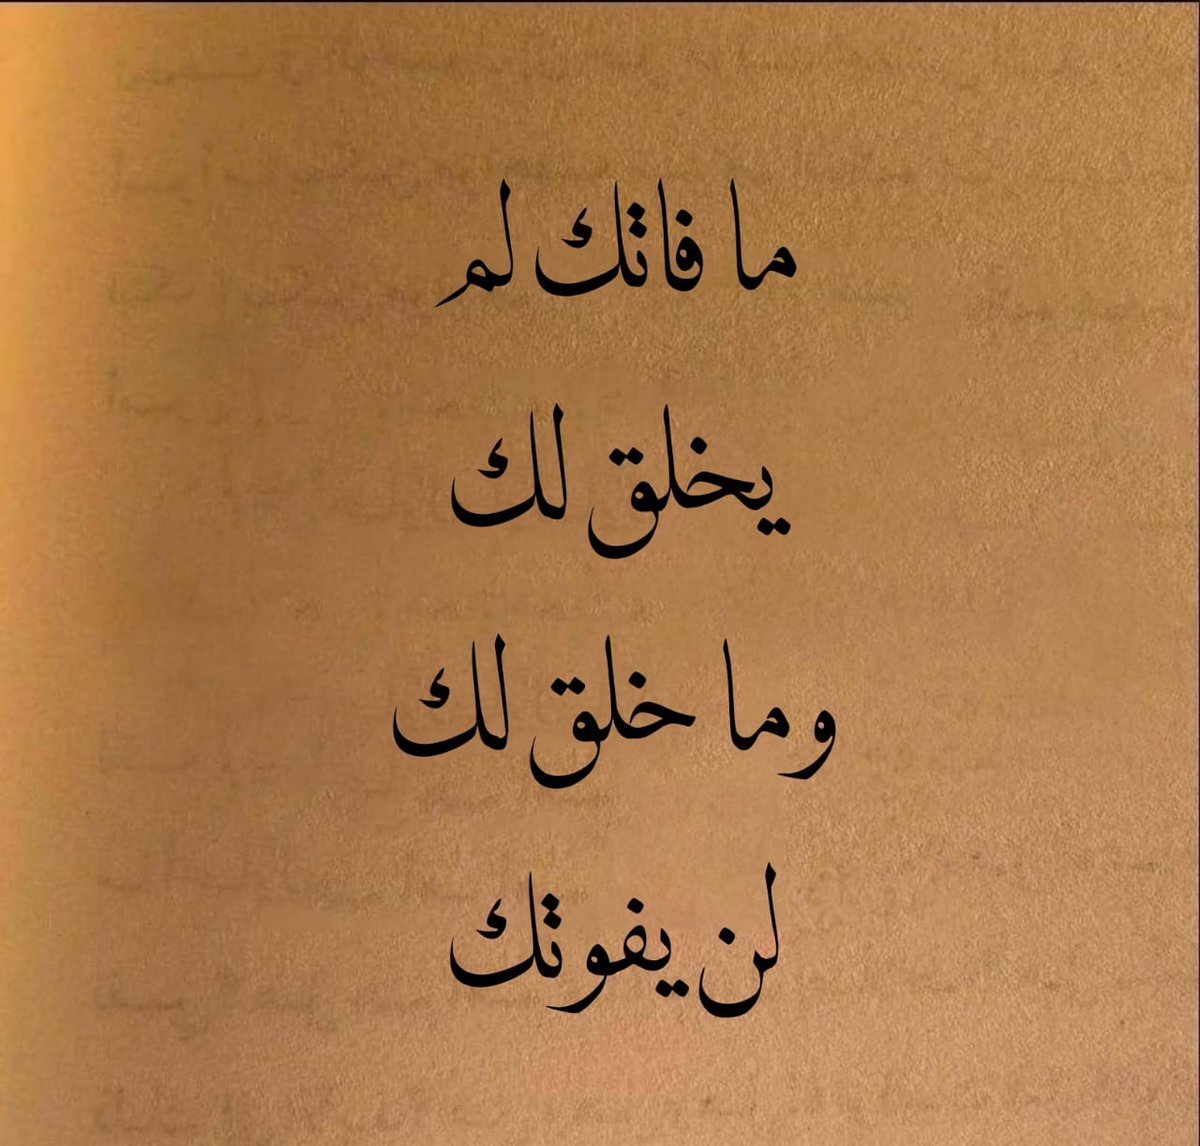 ما فاتك لم
يخلق لك
وما خلق لك
لن يفوتك